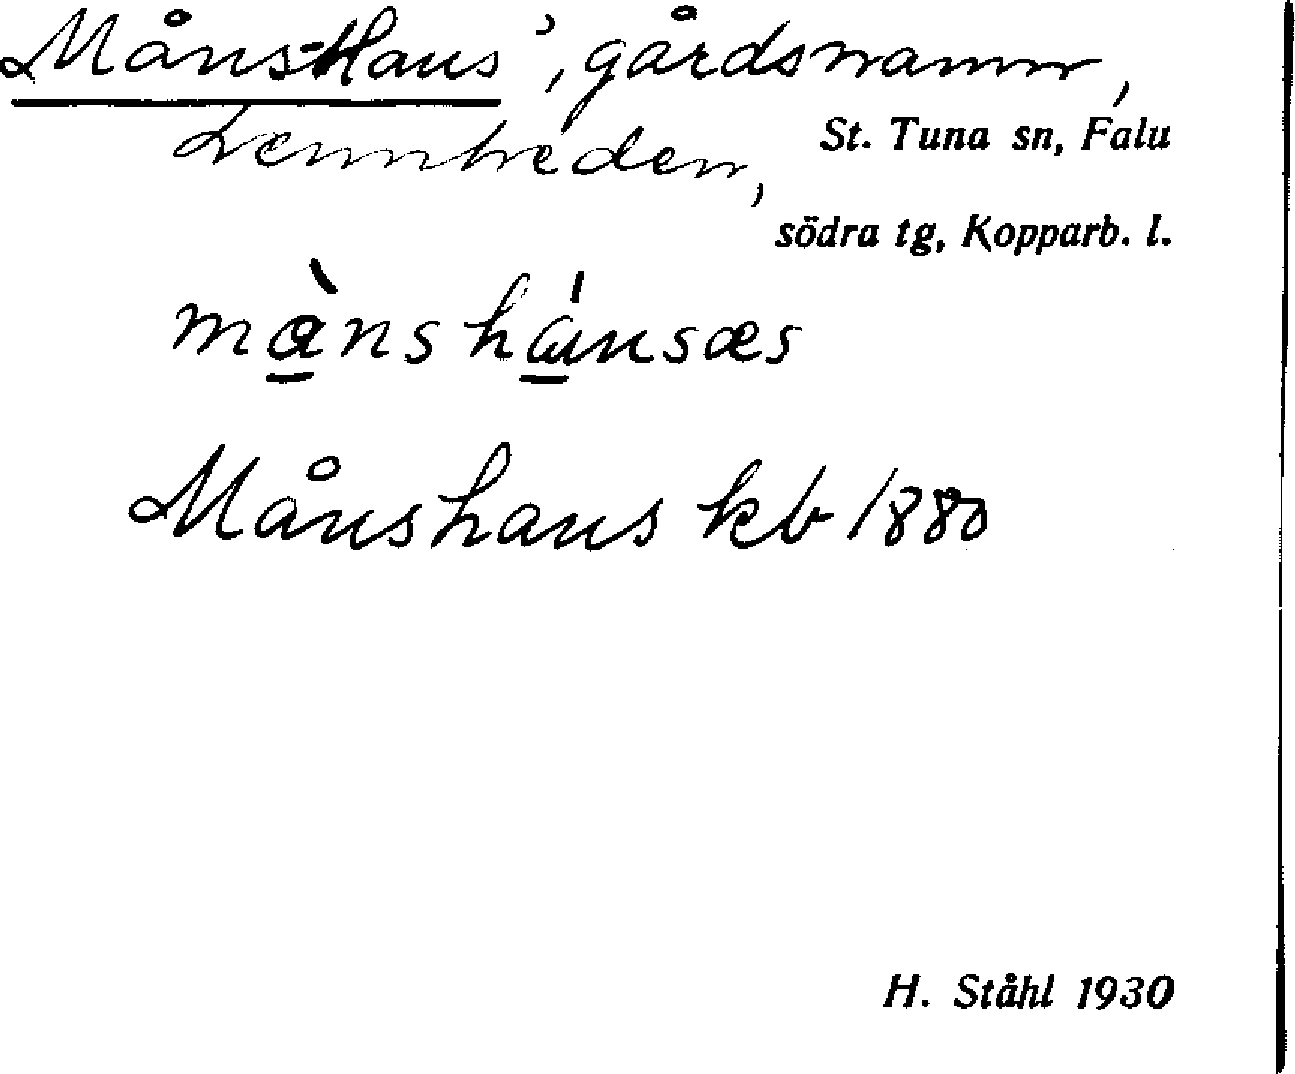 Måns-Hans', gårdsnamn,
Lennheden,
St. Tuna sn, Falu
södra tg, Kopparb. l.
màns hánsæs
Månshans kb 1880
H. Ståhl 1930